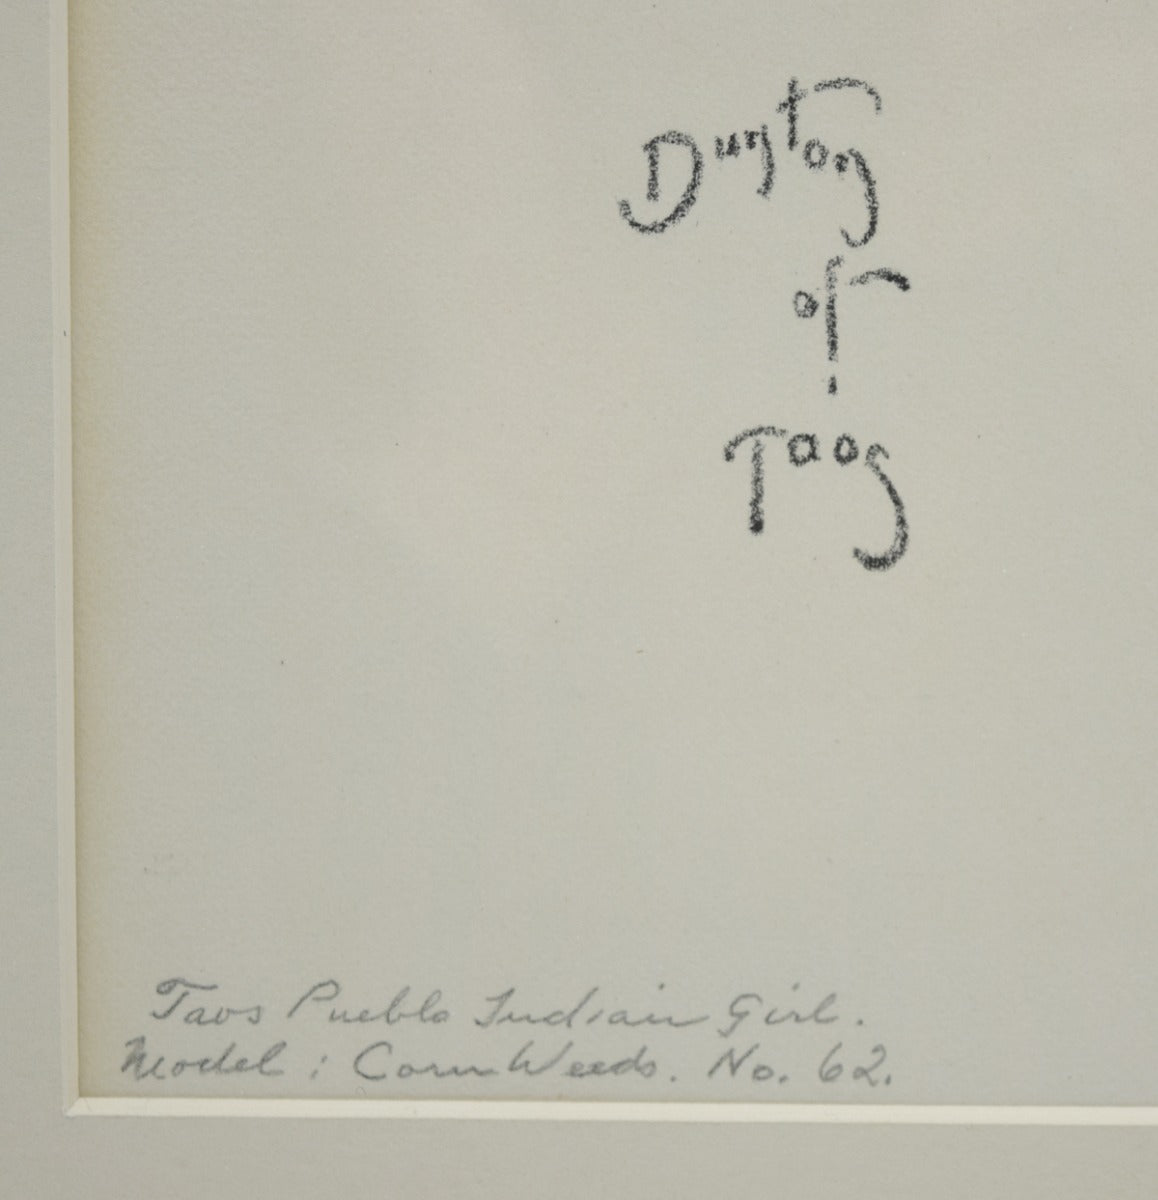 Dunton
of
Taos
Taos Pueblo Indian Girl.
Model : Corn Weeds. No. 62.